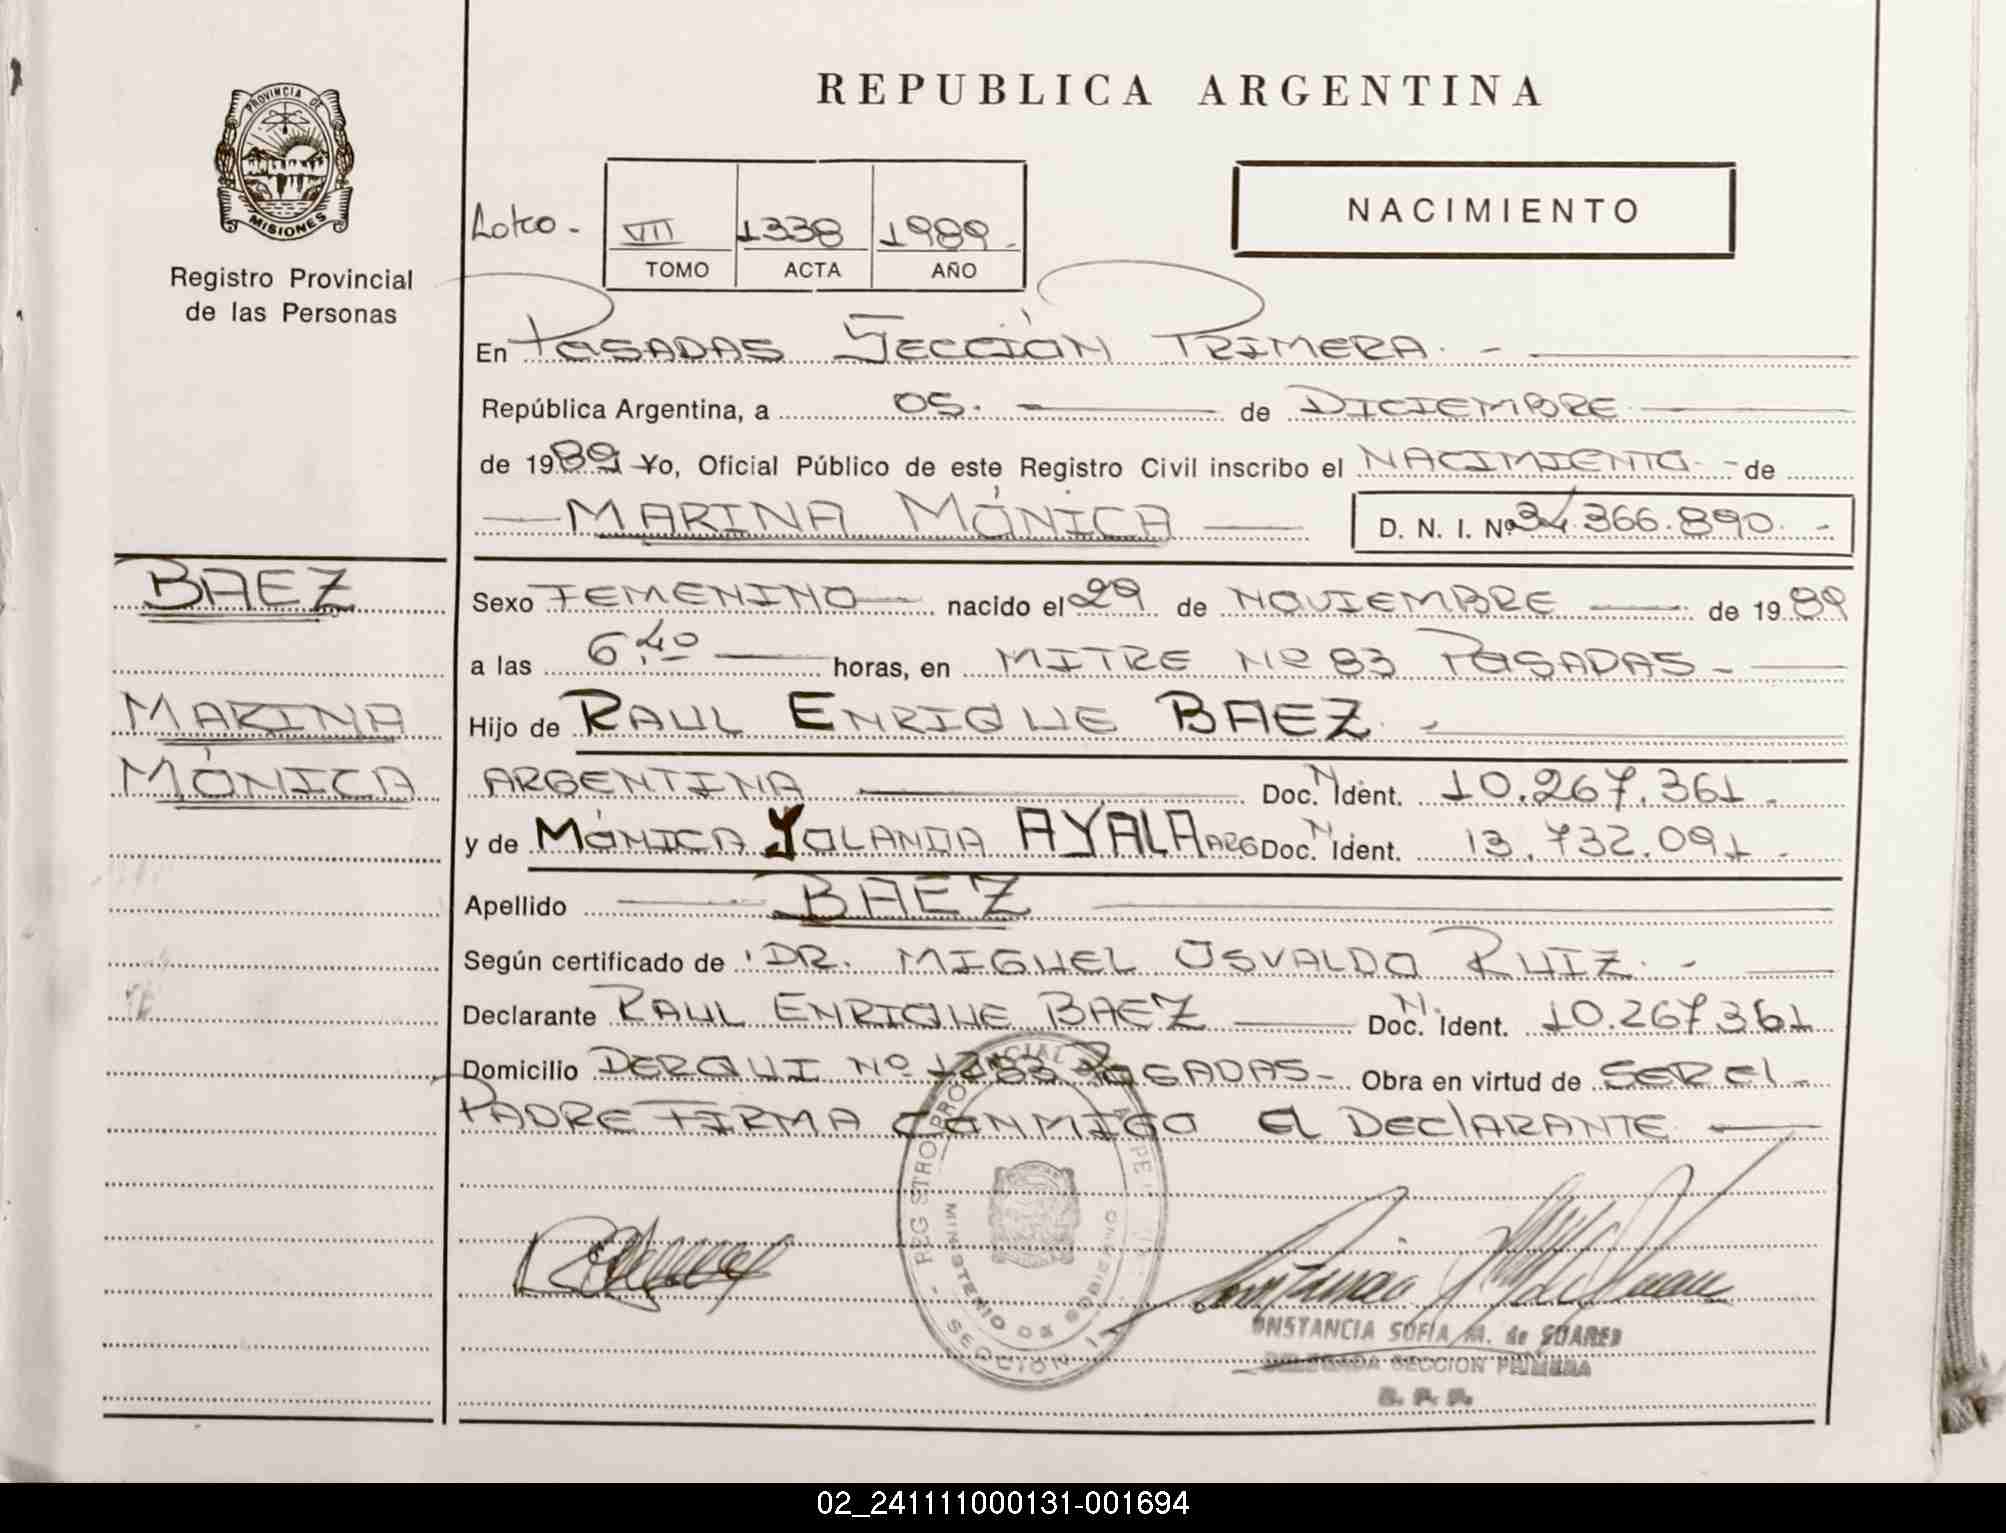 REPUBLICA ARGENTINA
PROVINCIA DE
MISIONES
Registro Provincial
de las Personas
VII 1338 1989.-
TOMO ACTA AÑO
NACIMIENTO
En POSADAS SECCIÓN PRIMERA.-
República Argentina, a 05. de DICIEMBRE
de 1989 Yo, Oficial Público de este Registro Civil inscribo el NACIMIENTO.- de
MARINA MÓNICA
D. N. I. Nº 34.366.890.-
BAEZ
MARINA
MÓNICA
Sexo FEMENINO nacido el 29 de NOVIEMBRE de 1989
a las 6,40 horas, en MITRE Nº 83 POSADAS-
Hijo de RAUL ENRIQUE BAEZ.-
ARGENTINA Doc. N. Ident. 10.267.361.
y de MÓNICA YOLANDA AYALA ARG Doc. N. Ident. 13.732.091.-
Apellido BAEZ
Según certificado de DR. MIGUEL OSVALDO RUIZ.-
Declarante RAUL ENRIQUE BAEZ Doc. N. Ident. 10.267.361
Domicilio DERQUI Nº POSADAS- Obra en virtud de SER El-
PADRE FIRMA CONMIGO El DEClARANTE.
REGISTRO PROVINCIAL
MINISTERIO DE GOBIERNO
- SECCION 1ª
ONSTANCIA SOFIA M. de SUARES
DELEGADA SECCION PRIMERA
R. P. P.
02_241111000131-001694